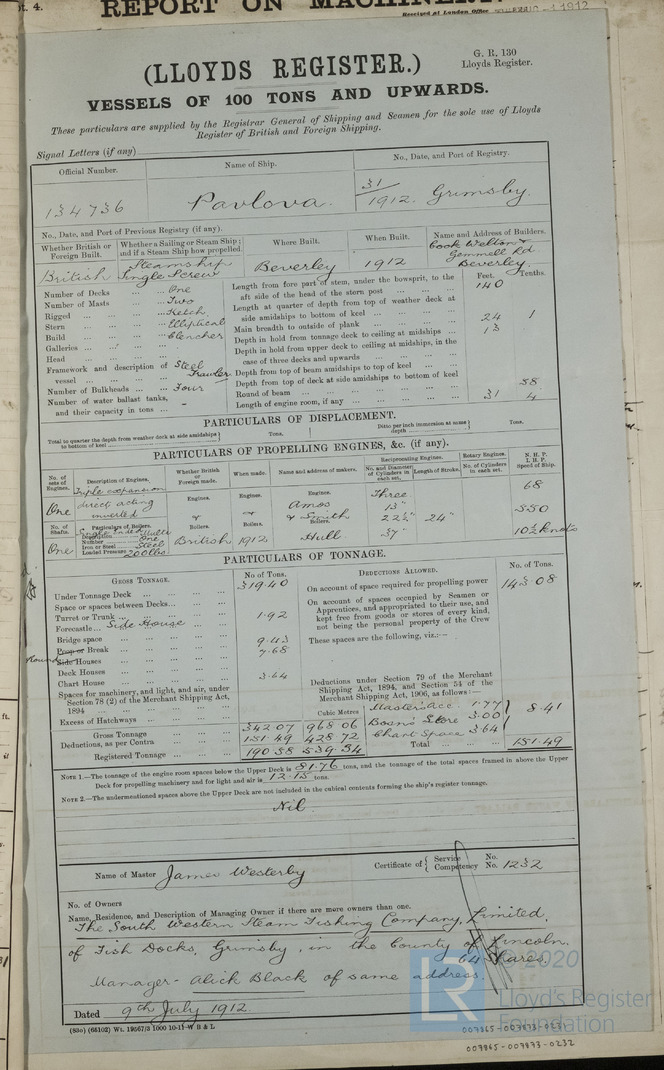 4.
REPORT ON MACHINERY
Received at London Office
1912
G. R. 130
Lloyds Register.
(LLOYDS REGISTER.)
VESSELS OF 100 TONS AND UPWARDS.
These particulars are supplied by the Registrar General of Shipping and Seamen for the sole use of Lloyds
Register of British and Foreign Shipping.
Signal Letters (if any)
Official Number. Name of Ship. No., Date, and Port of Registry.
134736 Pavlova. 31/1912. Grimsby.
No., Date, and Port of Previous Registry (if any).
Whether British or Foreign Built. Whether a Sailing or Steam Ship; and if a Steam Ship how propelled. Where Built. When Built. Name and Address of Builders.
British Steamship Single Screw Beverley 1912 Cook Welton & Gemmell Ld Beverley.
Feet. Tenths.
Number of Decks ... One
Number of Masts ... Two
Rigged ... Ketch
Stern ... Elliptical
Build ... Clencher
Galleries ...
Head ...
Framework and description of vessel ... Steel Trawler
Number of Bulkheads ... Four
Number of water ballast tanks, and their capacity in tons ... -
Length from fore part of stem, under the bowsprit, to the aft side of the head of the stern post ... 140
Length at quarter of depth from top of weather deck at side amidships to bottom of keel ...
Main breadth to outside of plank ... 24 1
Depth in hold from tonnage deck to ceiling at midships ... 13
Depth in hold from upper deck to ceiling at midships, in the case of three decks and upwards ...
Depth from top of beam amidships to top of keel ...
Depth from top of deck at side amidships to bottom of keel
Round of beam ... 58
Length of engine room, if any ... 31 4
PARTICULARS OF DISPLACEMENT.
Total to quarter the depth from weather deck at side amidships to bottom of keel ... Tons. Ditto per inch immersion at same depth ... Tons.
PARTICULARS OF PROPELLING ENGINES, &c. (if any).
No. of sets of Engines. Description of Engines. Whether British or Foreign made. When made. Name and address of makers. Reciprocating Engines. No. and Diameter of Cylinders in each set. Length of Stroke. Rotary Engines. No. of Cylinders in each set. N. H. P. I. H. P. Speed of Ship.
Engines. Engines. Engines.
One Triple expansion direct acting inverted Three 13" 22½" 37" 24" 68
No. of Shafts. Particulars of Boilers. Boilers. Boilers. Amos & Smith Boilers. 550
Description
Number One
Iron or Steel Steel
Loaded Pressure 200lbs
One British 1912 Hull 10½ knots
PARTICULARS OF TONNAGE.
GROSS TONNAGE. No of Tons. DEDUCTIONS ALLOWED. No. of Tons.
Under Tonnage Deck ... 319.40
Space or spaces between Decks ...
Turret or Trunk ...
Forecastle ... Side House 1.92
Bridge space ...
Poop or Break ... 9.43
Round Side Houses ... 7.68
Deck Houses ...
Chart House ... 3.64
Spaces for machinery, and light, and air, under Section 78 (2) of the Merchant Shipping Act, 1894
Excess of Hatchways ...
On account of space required for propelling power 143.08
On account of spaces occupied by Seamen or Apprentices, and appropriated to their use, and kept free from goods or stores of every kind, not being the personal property of the Crew
These spaces are the following, viz.:—
Deductions under Section 79 of the Merchant Shipping Act, 1894, and Section 54 of the Merchant Shipping Act, 1906, as follows:—
Cubic Metres
Master's Acc. 1.77
Bosn's Store 3.00
Chart Space 3.64
8.41
Gross Tonnage 342.07 968.06
Deductions, as per Contra 151.49 428.72
Registered Tonnage 190.58 539.34
Total 151.49
NOTE 1.—The tonnage of the engine room spaces below the Upper Deck is 81.76 tons, and the tonnage of the total spaces framed in above the Upper
Deck for propelling machinery and for light and air is 12.15 tons.
NOTE 2.—The undermentioned spaces above the Upper Deck are not included in the cubical contents forming the ship's register tonnage.
Nil.
Name of Master James Westerby Certificate of { Service No. Competency No. 1232
No. of Owners
Name, Residence, and Description of Managing Owner if there are more owners than one.
The South Western Steam Fishing Company, Limited,
of Fish Docks, Grimsby, in the County of Lincoln.
64 Shares
Manager - Alick Black of same address.
Dated 9th July 1912
(83o) (66102) Wt. 19567/3 1000 10-11 W B & L
LR
© 2020
Lloyd's Register
Foundation
007865-007873-0232
007865-007873-0232
ft.